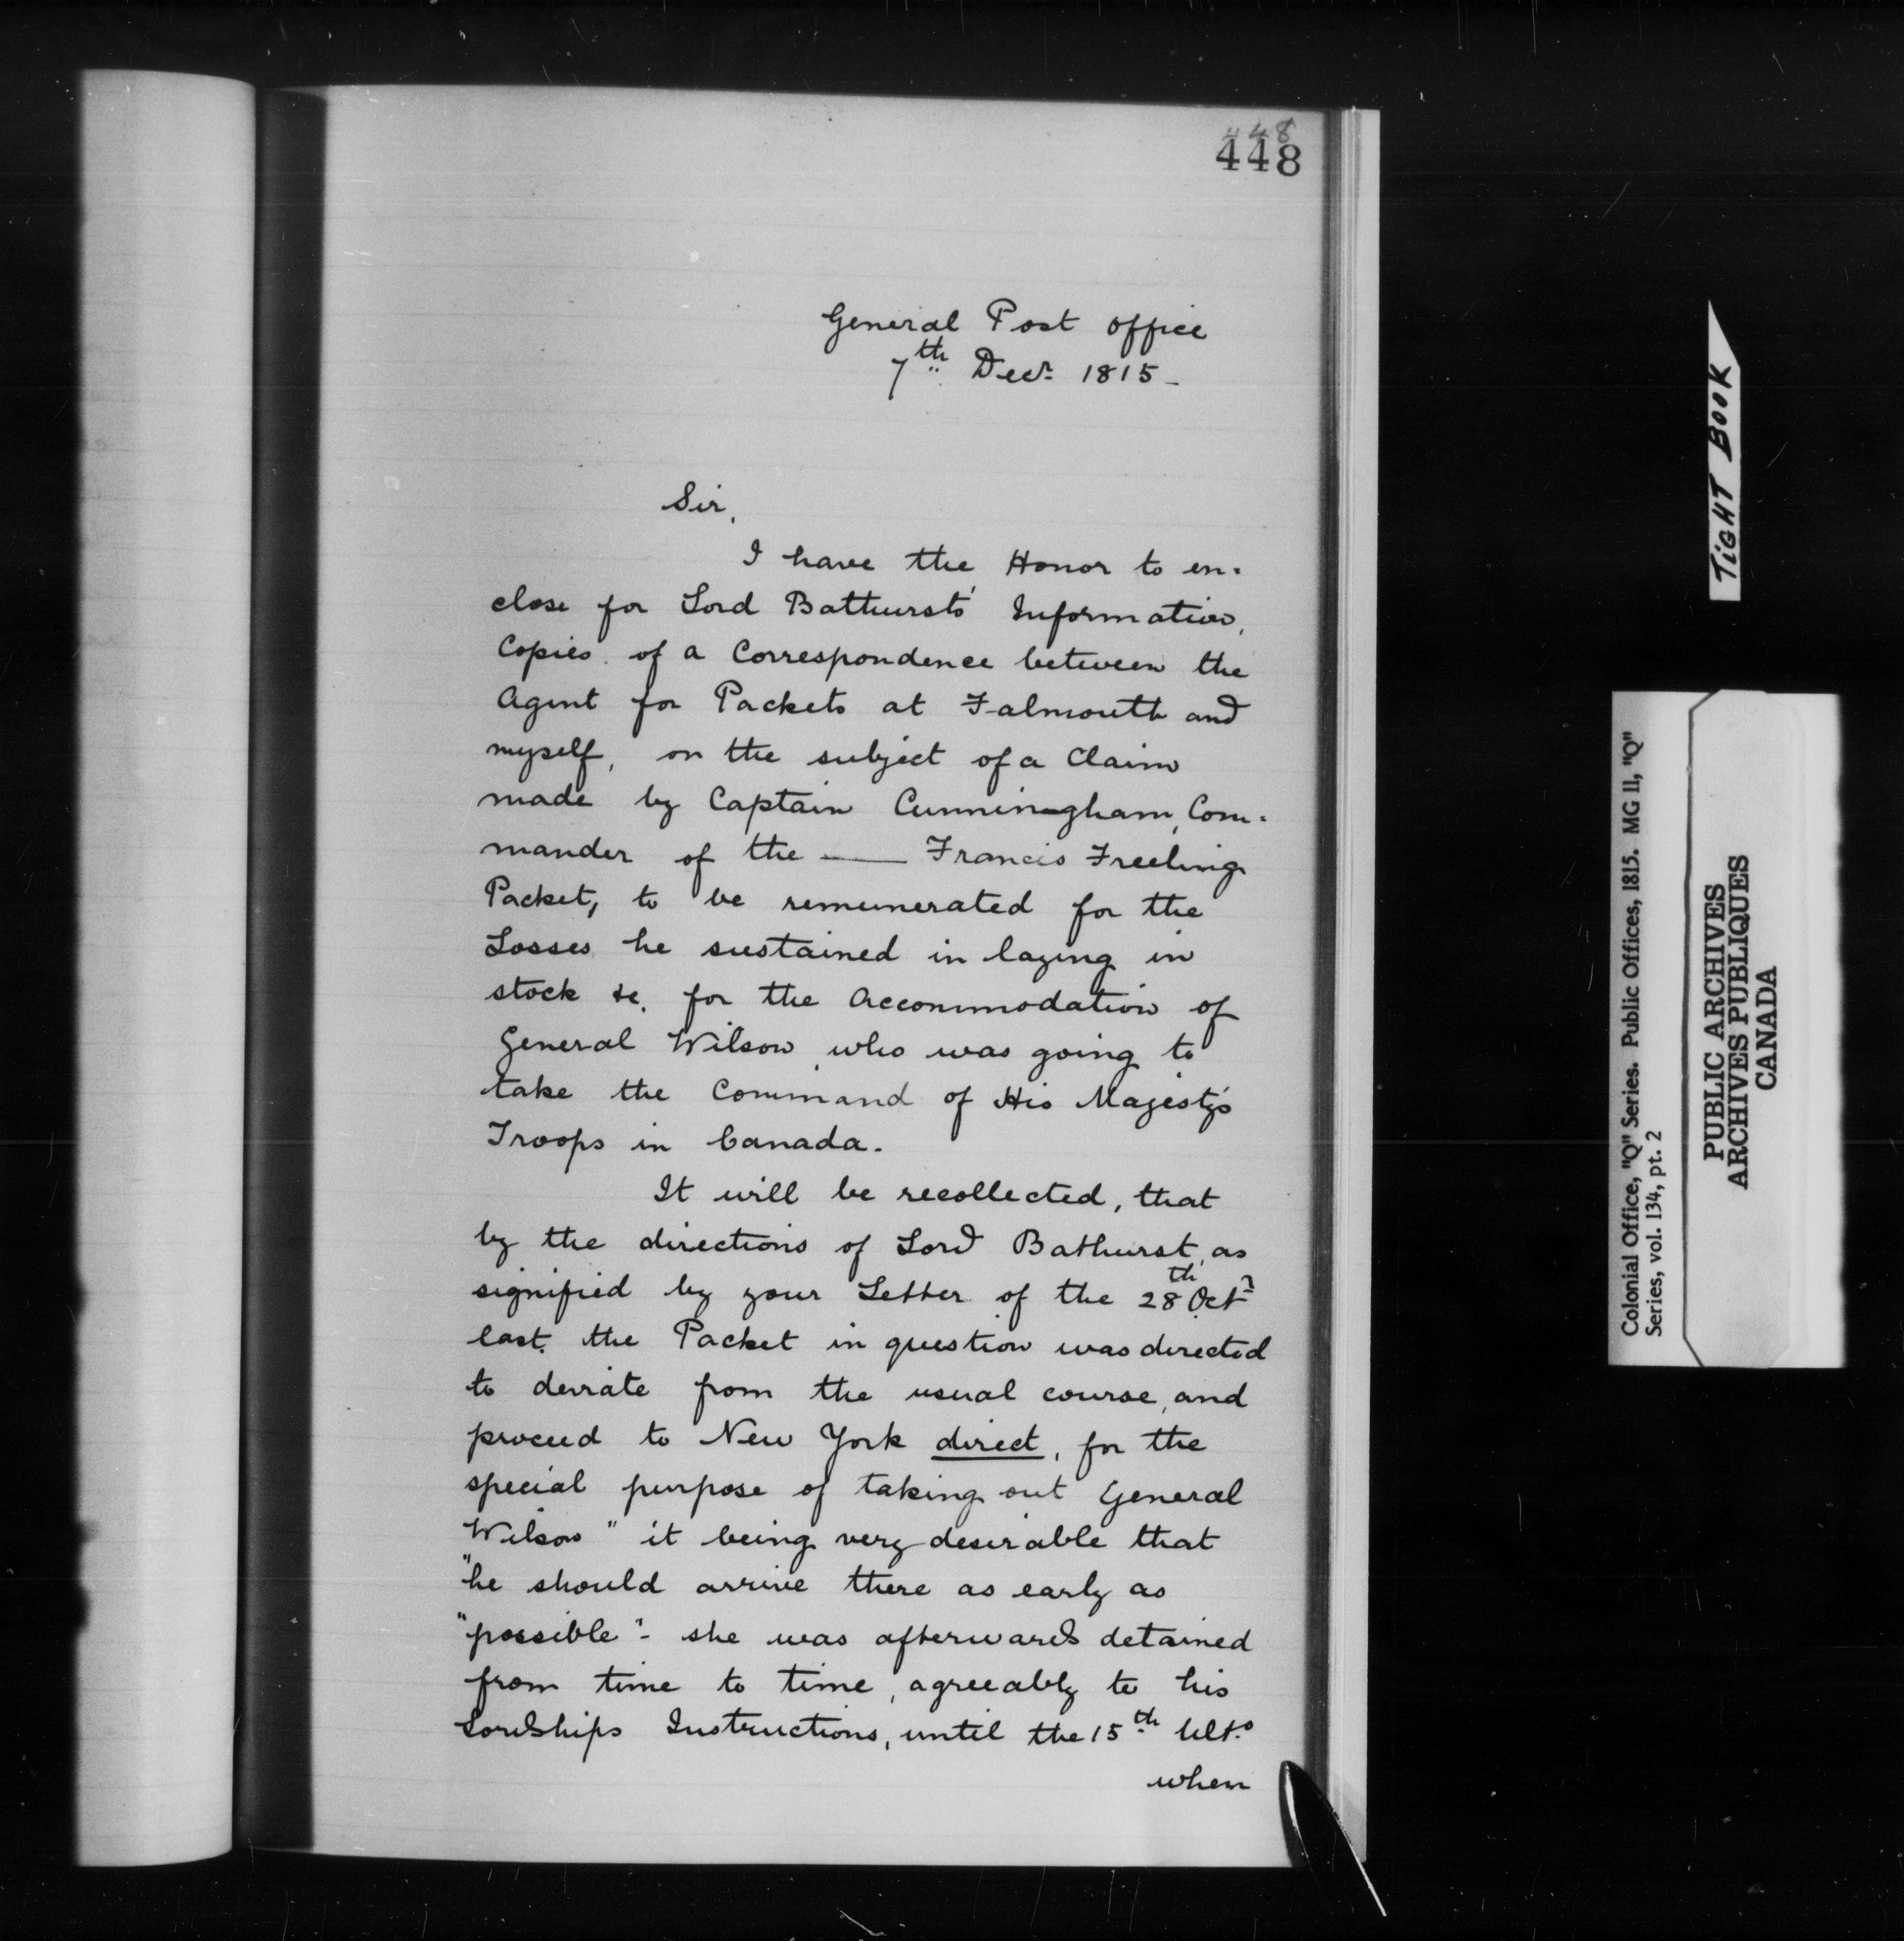 448
448
General Post Office
7th Decr 1815 -
Sir,
I have the Honor to en-
close for Lord Bathursts' Information,
Copies of a Correspondence between the
Agent for Packets at Falmouth and
myself, on the subject of a Claim
made by Captain Cunningham, Com-
mander of the —— Francis Freeling
Packet, to be remunerated for the
Losses he sustained in laying in
stock &c. for the Accommodation of
General Wilson, who was going to
take the Command of His Majesty's
Troops in Canada.
It will be recollected, that
by the directions of Lord Bathurst, as
signified by your Letter of the 28th Octr
last, the Packet in question was directed
to deviate from the usual course, and
proceed to New York direct, for the
special purpose of taking out General
Wilson "it being very desirable that
"he should arrive there as early as
"possible"- she was afterwards detained
from time to time, agreeably to his
Lordships Instructions, until the 15th Ulto
when
TIGHT BOOK
Colonial Office, "Q" Series. Public Offices, 1815. MG 11, "Q"
Series, vol. 134, pt. 2
PUBLIC ARCHIVES
ARCHIVES PUBLIQUES
CANADA